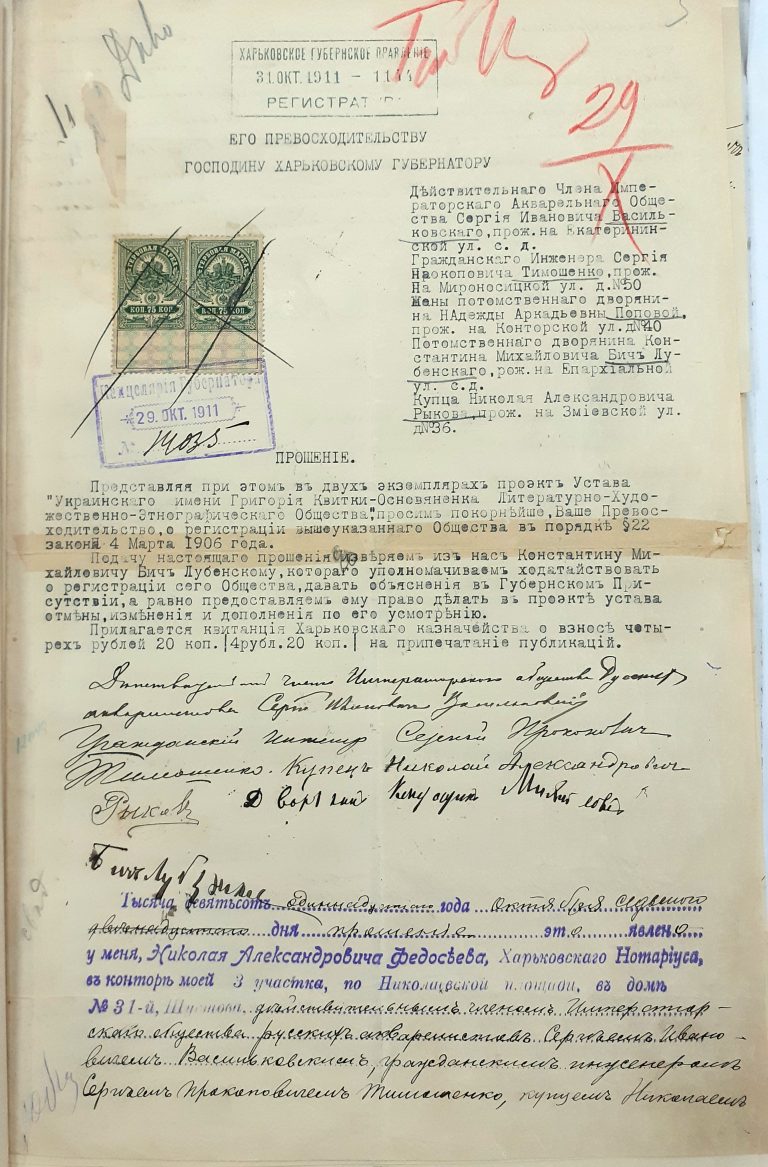 ХАРЬКОВСКОЕ ГУБЕРНСКОЕ ПРАВЛЕНІЕ
31.ОКТ.1911 -
РЕГИСТРАТУРА
29
X
ЕГО ПРЕВОСХОДИТЕЛЬСТВУ
ГОСПОДИНУ ХАРЬКОВСКОМУ ГУБЕРНАТОРУ
Дѣйствительнаго Члена Импе-
раторскаго Акварельнаго Обще-
ства Сергія Ивановича Василь-
ковскаго,прож.на Екатеринин-
ской ул. с. д.
Гражданскаго Инженера Сергія
Прокоповича Тимошенко,прож.
на Мироносицкой ул. д.№50
Жены потомственнаго дворяни-
на НАдежды Аркадьевны Поповой,
прож. на Конторской ул.д№40
Потомственнаго дворянина Кон-
стантина Михайловича Бичъ Лу-
бенскаго,рож.на Епархіальной
ул. с.д.
Купца Николая Александровича
Рыкова,прож. на Зміевской ул.
д№36.
ТОРГОВАЯ МАРКА
ТОРГОВАЯ МАРКА
КОП.75 КОП.
КОП.75 КОП.
Канцелярія Губернатора
29.ОКТ.1911
№ 14035
ПРОШЕНІЕ.
Представляя при этомъ въ двухъ экземплярахъ проэктъ Устава
"Украинскаго имени Григорія Квитки-Основяненка Литературно-Худо-
жественно-Этнографическаго Общества",просимъ покорнѣйше,Ваше Превос-
ходительство,о регистраціи вышеуказаннаго Общества въ порядкѣ §22
закона 4 Марта 1906 года.
Подачу настоящаго прошенія довѣряемъ изъ насъ Константину Ми-
хайловичу Бичъ Лубенскому,котораго уполномачиваемъ ходатайствовать
о регистраціи сего Общества,давать объясненія въ Губернскомъ При-
сутствіи,а равно предоставляемъ ему право дѣлать въ проэктѣ устава
отмѣны,измѣненія и дополненія по его усмотрѣнію.
Прилагается квитанція Харьковскаго казначейства о взносѣ четы-
рехъ рублей 20 коп.|4рубл.20 коп.| на припечатаніе публикацій.
Дѣйствительный членъ Императорскаго общества Русскихъ
акварелистовъ Сергѣй Ивановичъ Васильковскій
Гражданскій Инженеръ Сергѣй Прокоповичъ
Тимошенко. Купецъ Николай Александровичъ
Рыковъ Дворянинъ Константинъ Михайловичъ
Бичъ-Лубенскій
Тысяча девятьсотъ одиннадцатаго года октября седьмого
двенадцатаго дня прошеніе это явлено
у меня, Николая Александровича Федосѣева, Харьковскаго Нотаріуса,
въ конторѣ моей 3 участка, по Николаевской площади, въ домѣ
№ 31-й, дѣйствительнымъ членомъ Император-
скаго общества русскихъ акварелистовъ Сергѣемъ Ивано-
вичемъ Васильковскимъ, гражданскимъ инженеромъ
Сергѣемъ Прокоповичемъ Тимошенко, купцемъ Николаемъ